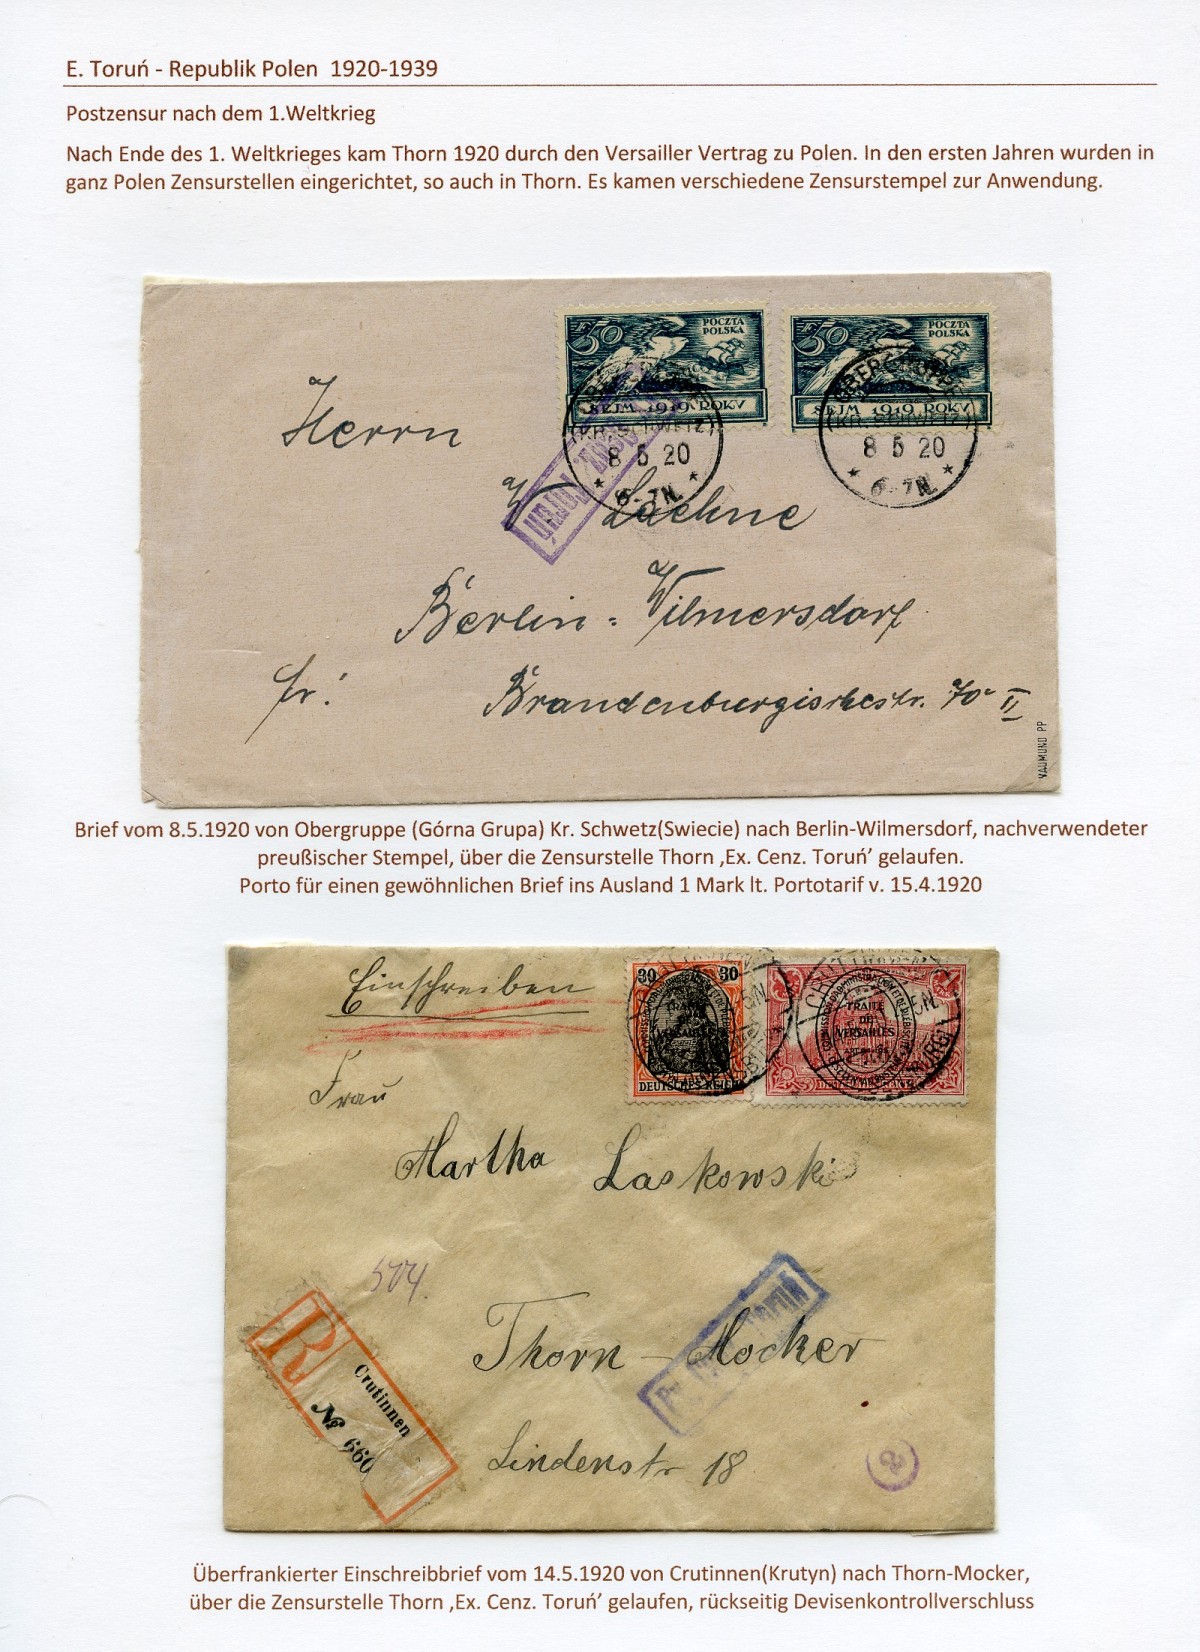 E. Toruń - Republik Polen 1920-1939
Postzensur nach dem 1.Weltkrieg
Nach Ende des 1. Weltkrieges kam Thorn 1920 durch den Versailler Vertrag zu Polen. In den ersten Jahren wurden in
ganz Polen Zensurstellen eingerichtet, so auch in Thorn. Es kamen verschiedene Zensurstempel zur Anwendung.
50 POCZTA POLSKA
SEJM 1919 ROKU
50 POCZTA POLSKA
SEJM 1919 ROKU
(KR. SCHWETZ)
8 5 20
6-7N.
(KR. SCHWETZ)
8 5 20
6-7N.
Toruń
Herrn
Laehne
Berlin-Wilmersdorf
fr!
Brandenburgischestr. 70 II
VAUMUND PP
Brief vom 8.5.1920 von Obergruppe (Górna Grupa) Kr. Schwetz(Swiecie) nach Berlin-Wilmersdorf, nachverwendeter
preußischer Stempel, über die Zensurstelle Thorn ‚Ex. Cenz. Toruń’ gelaufen.
Porto für einen gewöhnlichen Brief ins Ausland 1 Mark lt. Portotarif v. 15.4.1920
Einschreiben
30 30
TRAITÉ
DE
VERSAILLES
DEUTSCHES REICH
TRAITÉ
DE
VERSAILLES
Frau
Martha Laskowski
Thorn - Mocker
Lindenstr 18
R
Crutinnen
№ 660
Toruń
2
Überfrankierter Einschreibbrief vom 14.5.1920 von Crutinnen(Krutyn) nach Thorn-Mocker,
über die Zensurstelle Thorn ‚Ex. Cenz. Toruń’ gelaufen, rückseitig Devisenkontrollverschluss